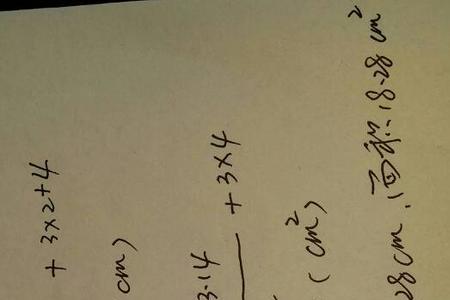 + 3×2+4
cm)
3.14 + 3×4
(cm²)
28cm,面积:18.28 cm²